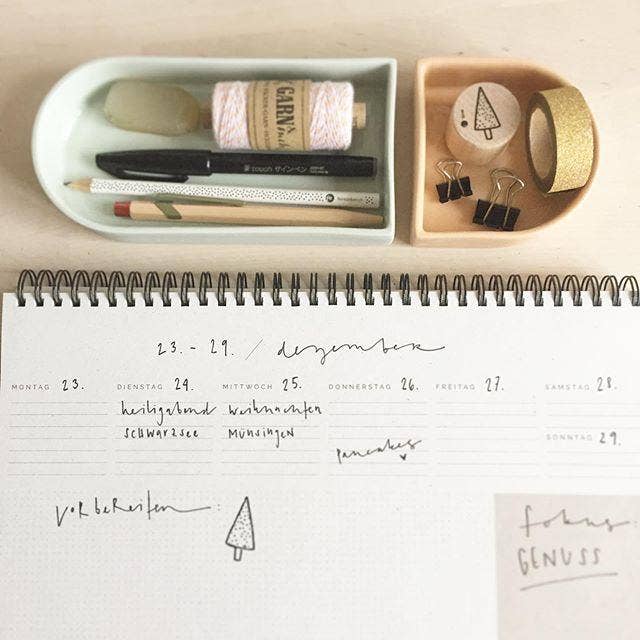 GARN
touch
23. - 29. / dezember
MONTAG 23. DIENSTAG 24. MITTWOCH 25. DONNERSTAG 26. FREITAG 27. SAMSTAG 28.
heiligabend weihnachten
SCHWARZSEE MÜNSINGEN
SONNTAG 29.
pancakes
vorbereiten:
fokus:
GENUSS